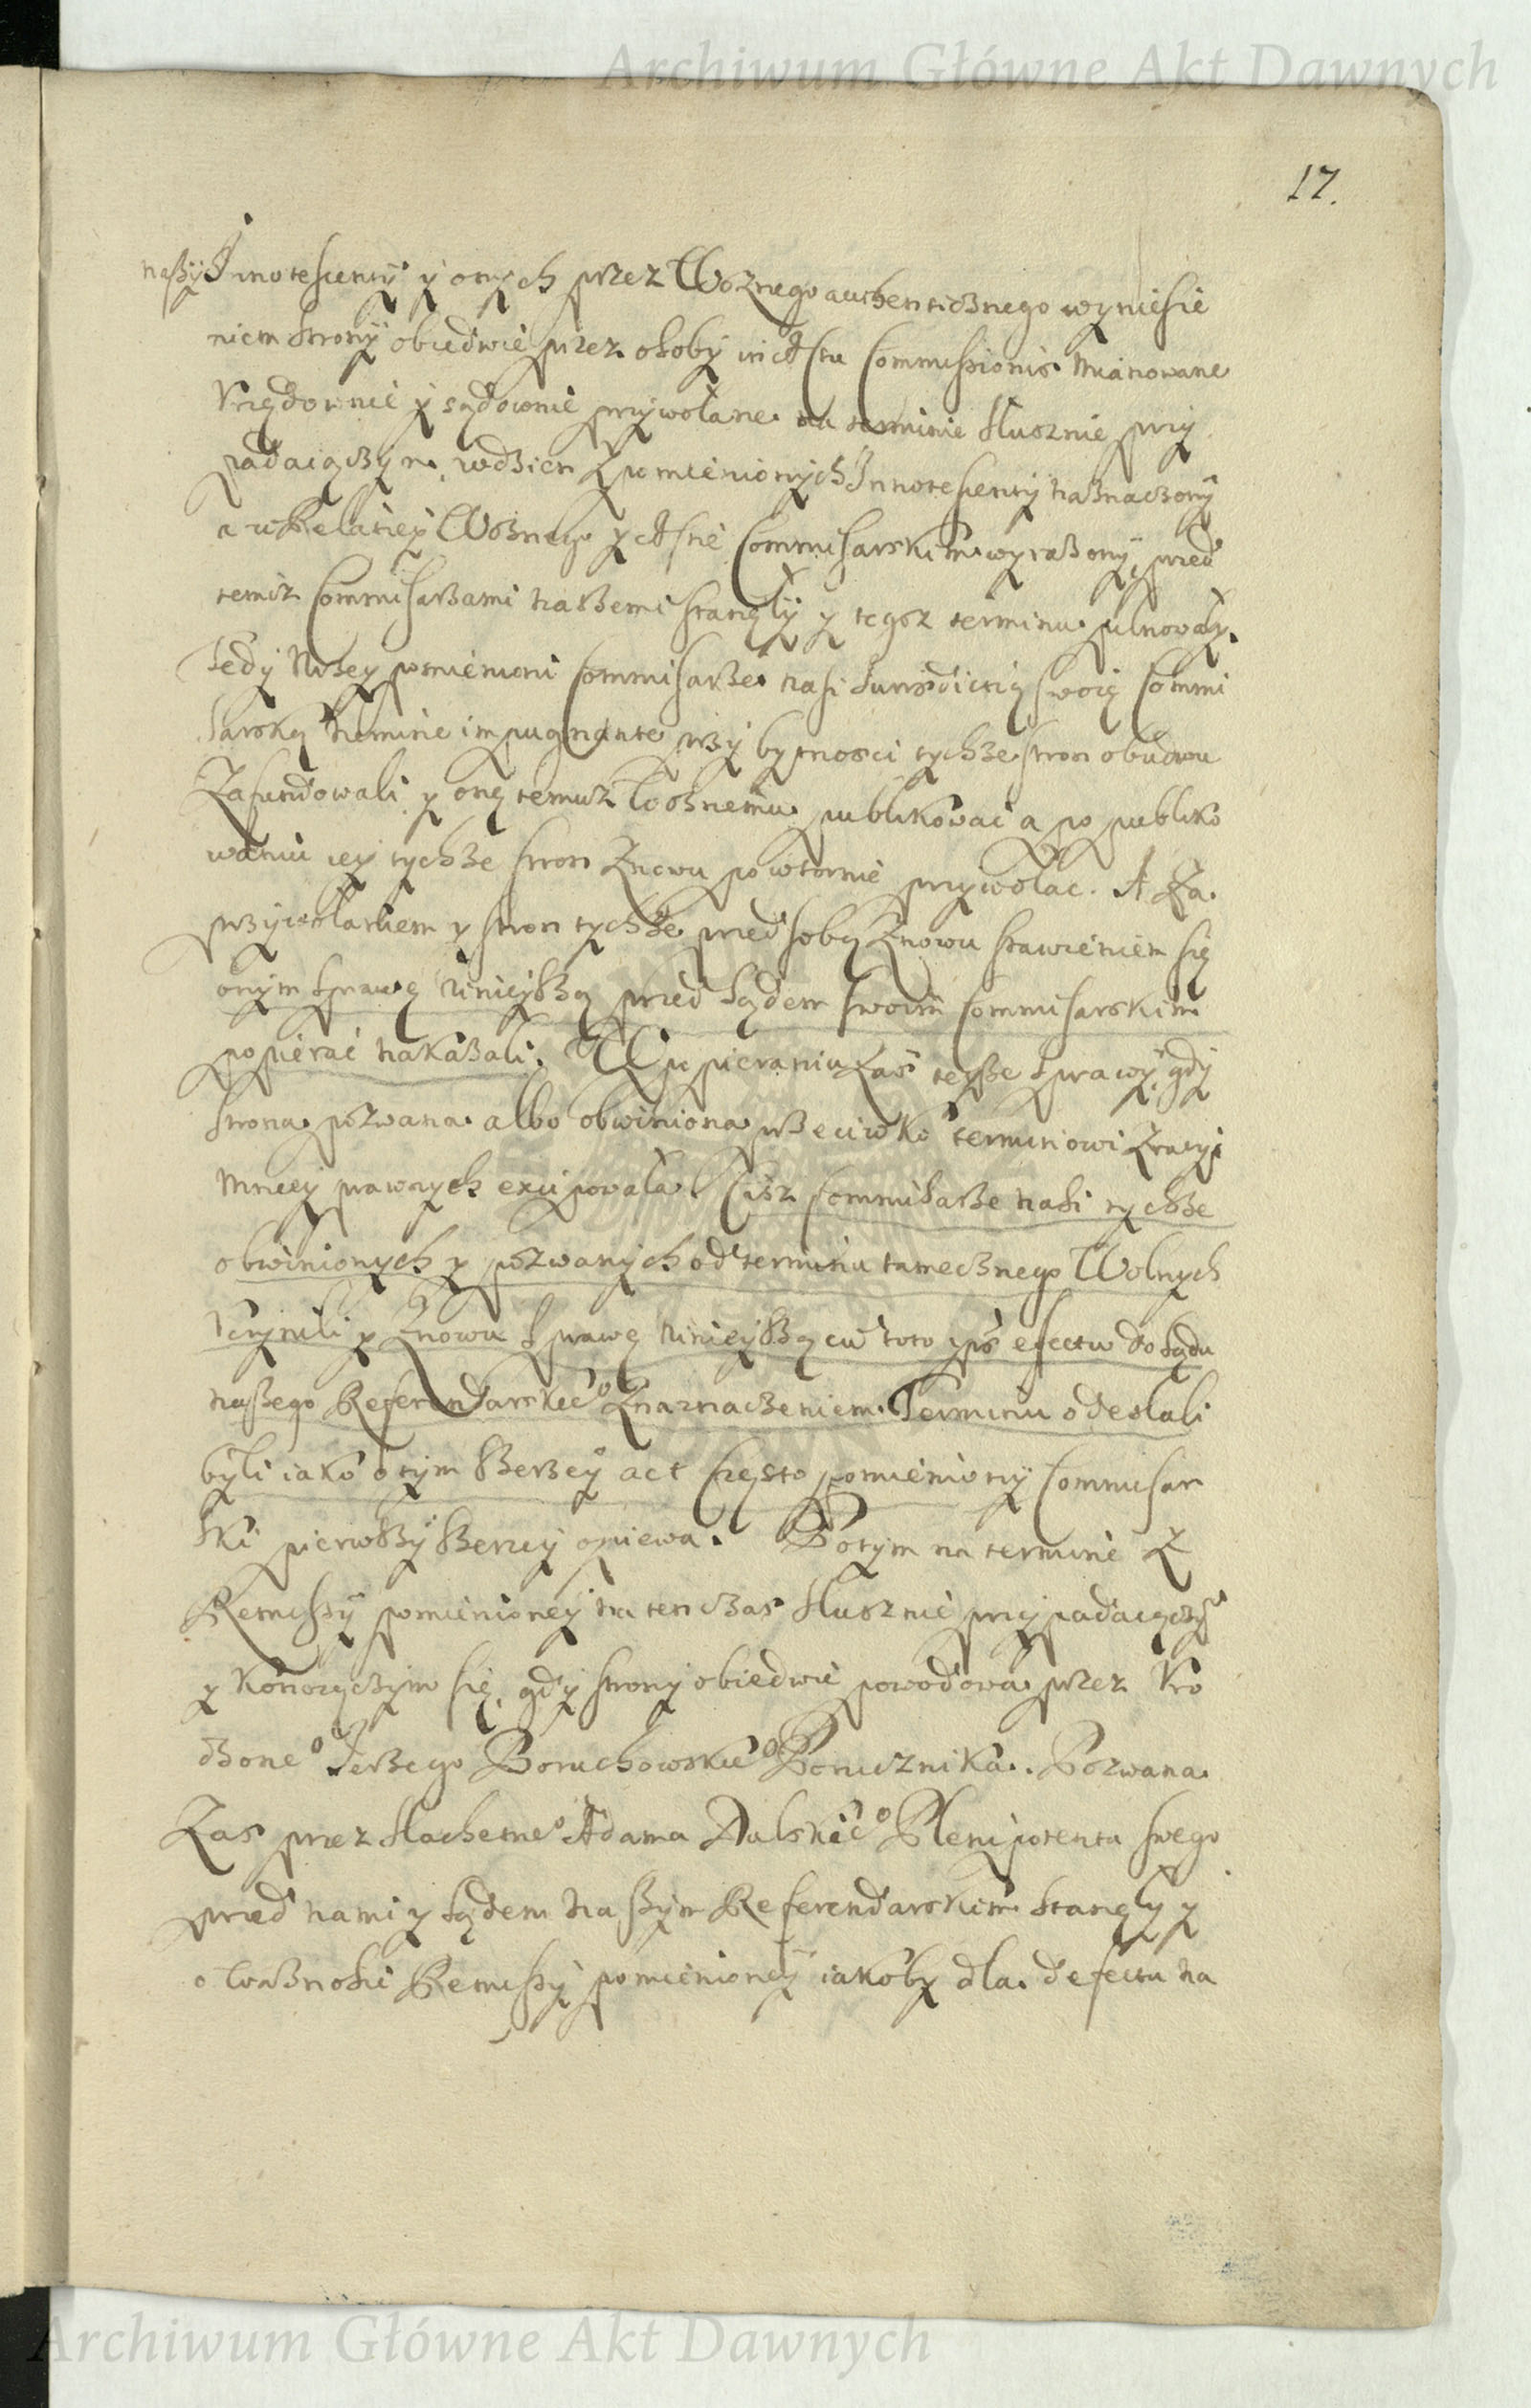 Archiwum Główne Akt Dawnych
17.
naszÿ Innotescentÿ ÿ onych przez Woznego authenticznego wyniesie
niem stronÿ obiedwie przez osobÿ in Actu Commissionis mianowane
Vrzędownie ÿ sądownie przÿwołane na terminie słusznie przÿ
padaiączÿm, wdzień zpomienionÿch Innotescentÿ naznaczonÿ
a wRelatieÿ Woznego ÿ Actie Commisarskim wyrazonÿ, przed
temiz Commisarzami naszemi stanęłÿ ÿ tegoz terminu pilnowałÿ.
Tedÿ wÿzeÿ pomienieni Commisarze nasi Jurisdictią swoię Commi
sarską nemine impugnante przÿ bytnosci tychze stron obudwu
Zafundowali ÿ onę temuz Woznemu publikować a po publiko
waniu ieÿ tychze stron znowu powtornie przywołac. A Za
przÿwołaniem y stron tychze przed sobą znowu stawieniem się
onÿm sprawę ninieÿszą przed sądem swoim Commisarskim
popierać nakazali. W popieraniu zas teyze sprawÿ, gdÿ
strona pozwana albo obwiniona przeciwko terminowi zracÿi
mnieÿ prawnych excipowała. Ciz Commisarze nasi tychze
obwinionych y pozwanÿch od terminu tamecznego Wolnych
Vczynili y znowu sprawę ninieÿszą cum toto ipso efectu do sądu
naszego Referendarskie° znaznaczeniem Terminu odesłali
bÿli iako otÿm szerzeÿ act często pomienionÿ Commisar
ski pierwszÿ szerzeÿ opiewa. Potÿm na terminie z
Remissÿ pomienioneÿ na ten czas słusznie przÿpadaiączÿm
y konczączÿm się, gdÿ stronÿ obiedwie powodowa przez Vro
dzone° Jerzego Boruchowskie° Porucznika. Pozwana
Zas przez slachetne° Adama Dulskie° Plenipotenta swego
przed nami y sądem naszÿm Referendarskim stanęłÿ y
o waznosci Remissÿ pomienioneÿ iakobÿ dla defectu na
Archiwum Główne Akt Dawnych